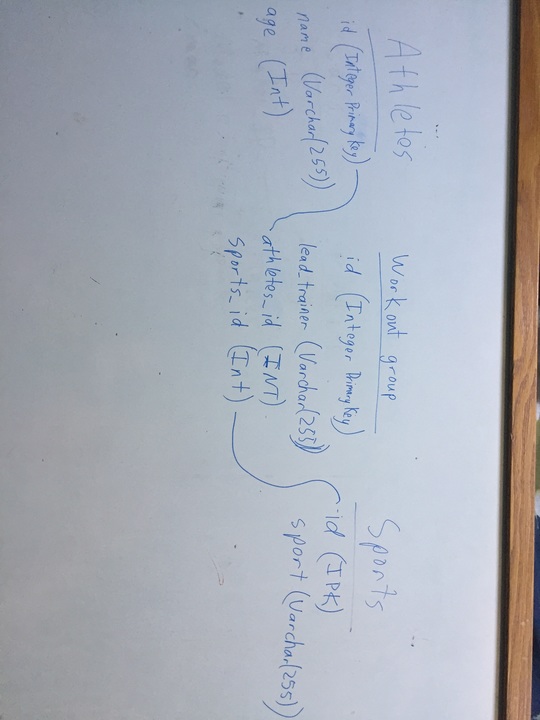 Athletes
id (Integer Primary Key)
name (Varchar(255))
age (Int)
Workout group
id (Integer Primary Key)
lead_trainer (Varchar(255))
athletes_id (INT)
Sports_id (Int)
Sports
id (IPK)
sport (Varchar(255))